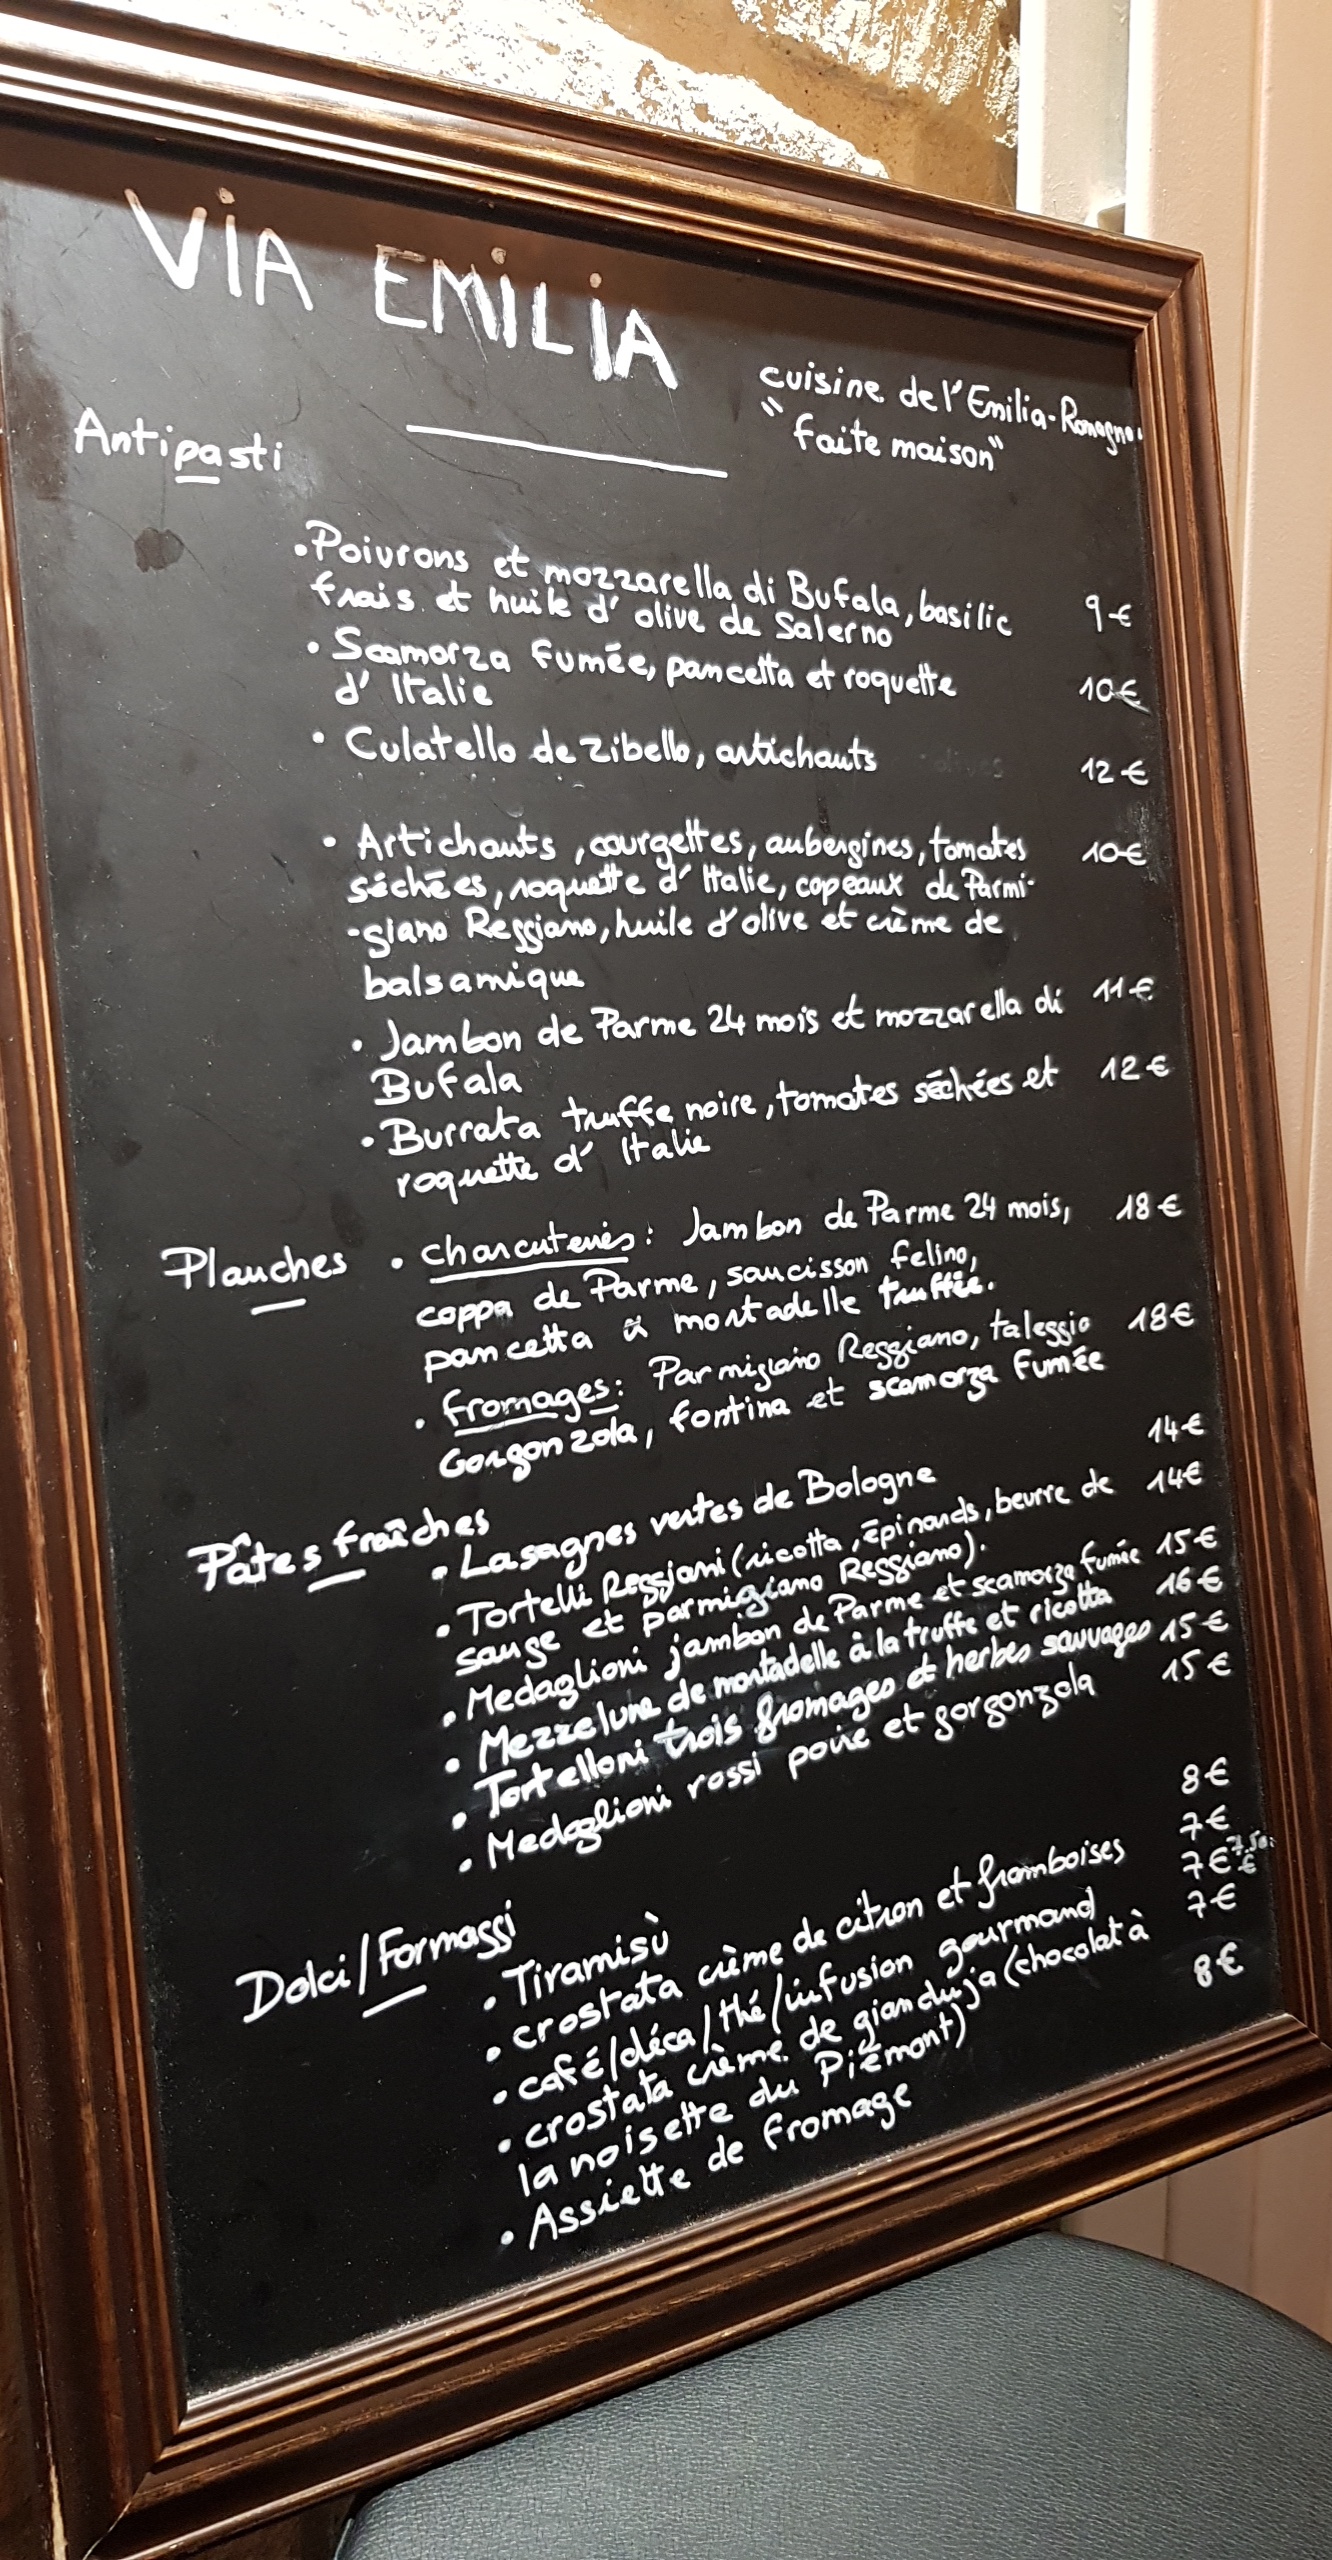 VIA EMILIA
cuisine de l'Emilia-Romagna
"faite maison"
Antipasti
• Poivrons et mozzarella di Bufala, basilic 9€
frais et huile d'olive de Salerno
• Scamorza fumée, pancetta et roquette 10€
d'Italie
• Culatello de Zibello, artichauts 12€
olives
• Artichauts, courgettes, aubergines, tomates 10€
séchées, roquette d'Italie, copeaux de Parmi-
-giano Reggiano, huile d'olive et crème de
balsamique
• Jambon de Parme 24 mois et mozzarella di 11€
Bufala
• Burrata truffe noire, tomates séchées et 12€
roquette d'Italie
Planches • charcuteries: Jambon de Parme 24 mois, 18€
coppa de Parme, saucisson felino,
pancetta & mortadelle truffée.
• fromages: Parmigiano Reggiano, taleggio 18€
Gorgonzola, fontina et scamorza fumée
Pâtes fraîches
• Lasagnes vertes de Bologne 14€
• Tortelli Reggiani (ricotta, épinards, beurre de 14€
sauge et parmigiano Reggiano).
• Medaglioni jambon de Parme et scamorza fumée 15€
• Mezzelune de mortadelle à la truffe et ricotta 16€
• Tortelloni trois fromages et herbes sauvages 15€
• Medaglioni rossi poire et gorgonzola 15€
Dolci/Formaggi
• Tiramisù 8€
• crostata crème de citron et framboises 7€
• café/déca/thé/infusion gourmand 7€ 7,50 €
• crostata crème de gianduja (chocolat à 7€
la noisette du Piémont)
• Assiette de fromage 8€